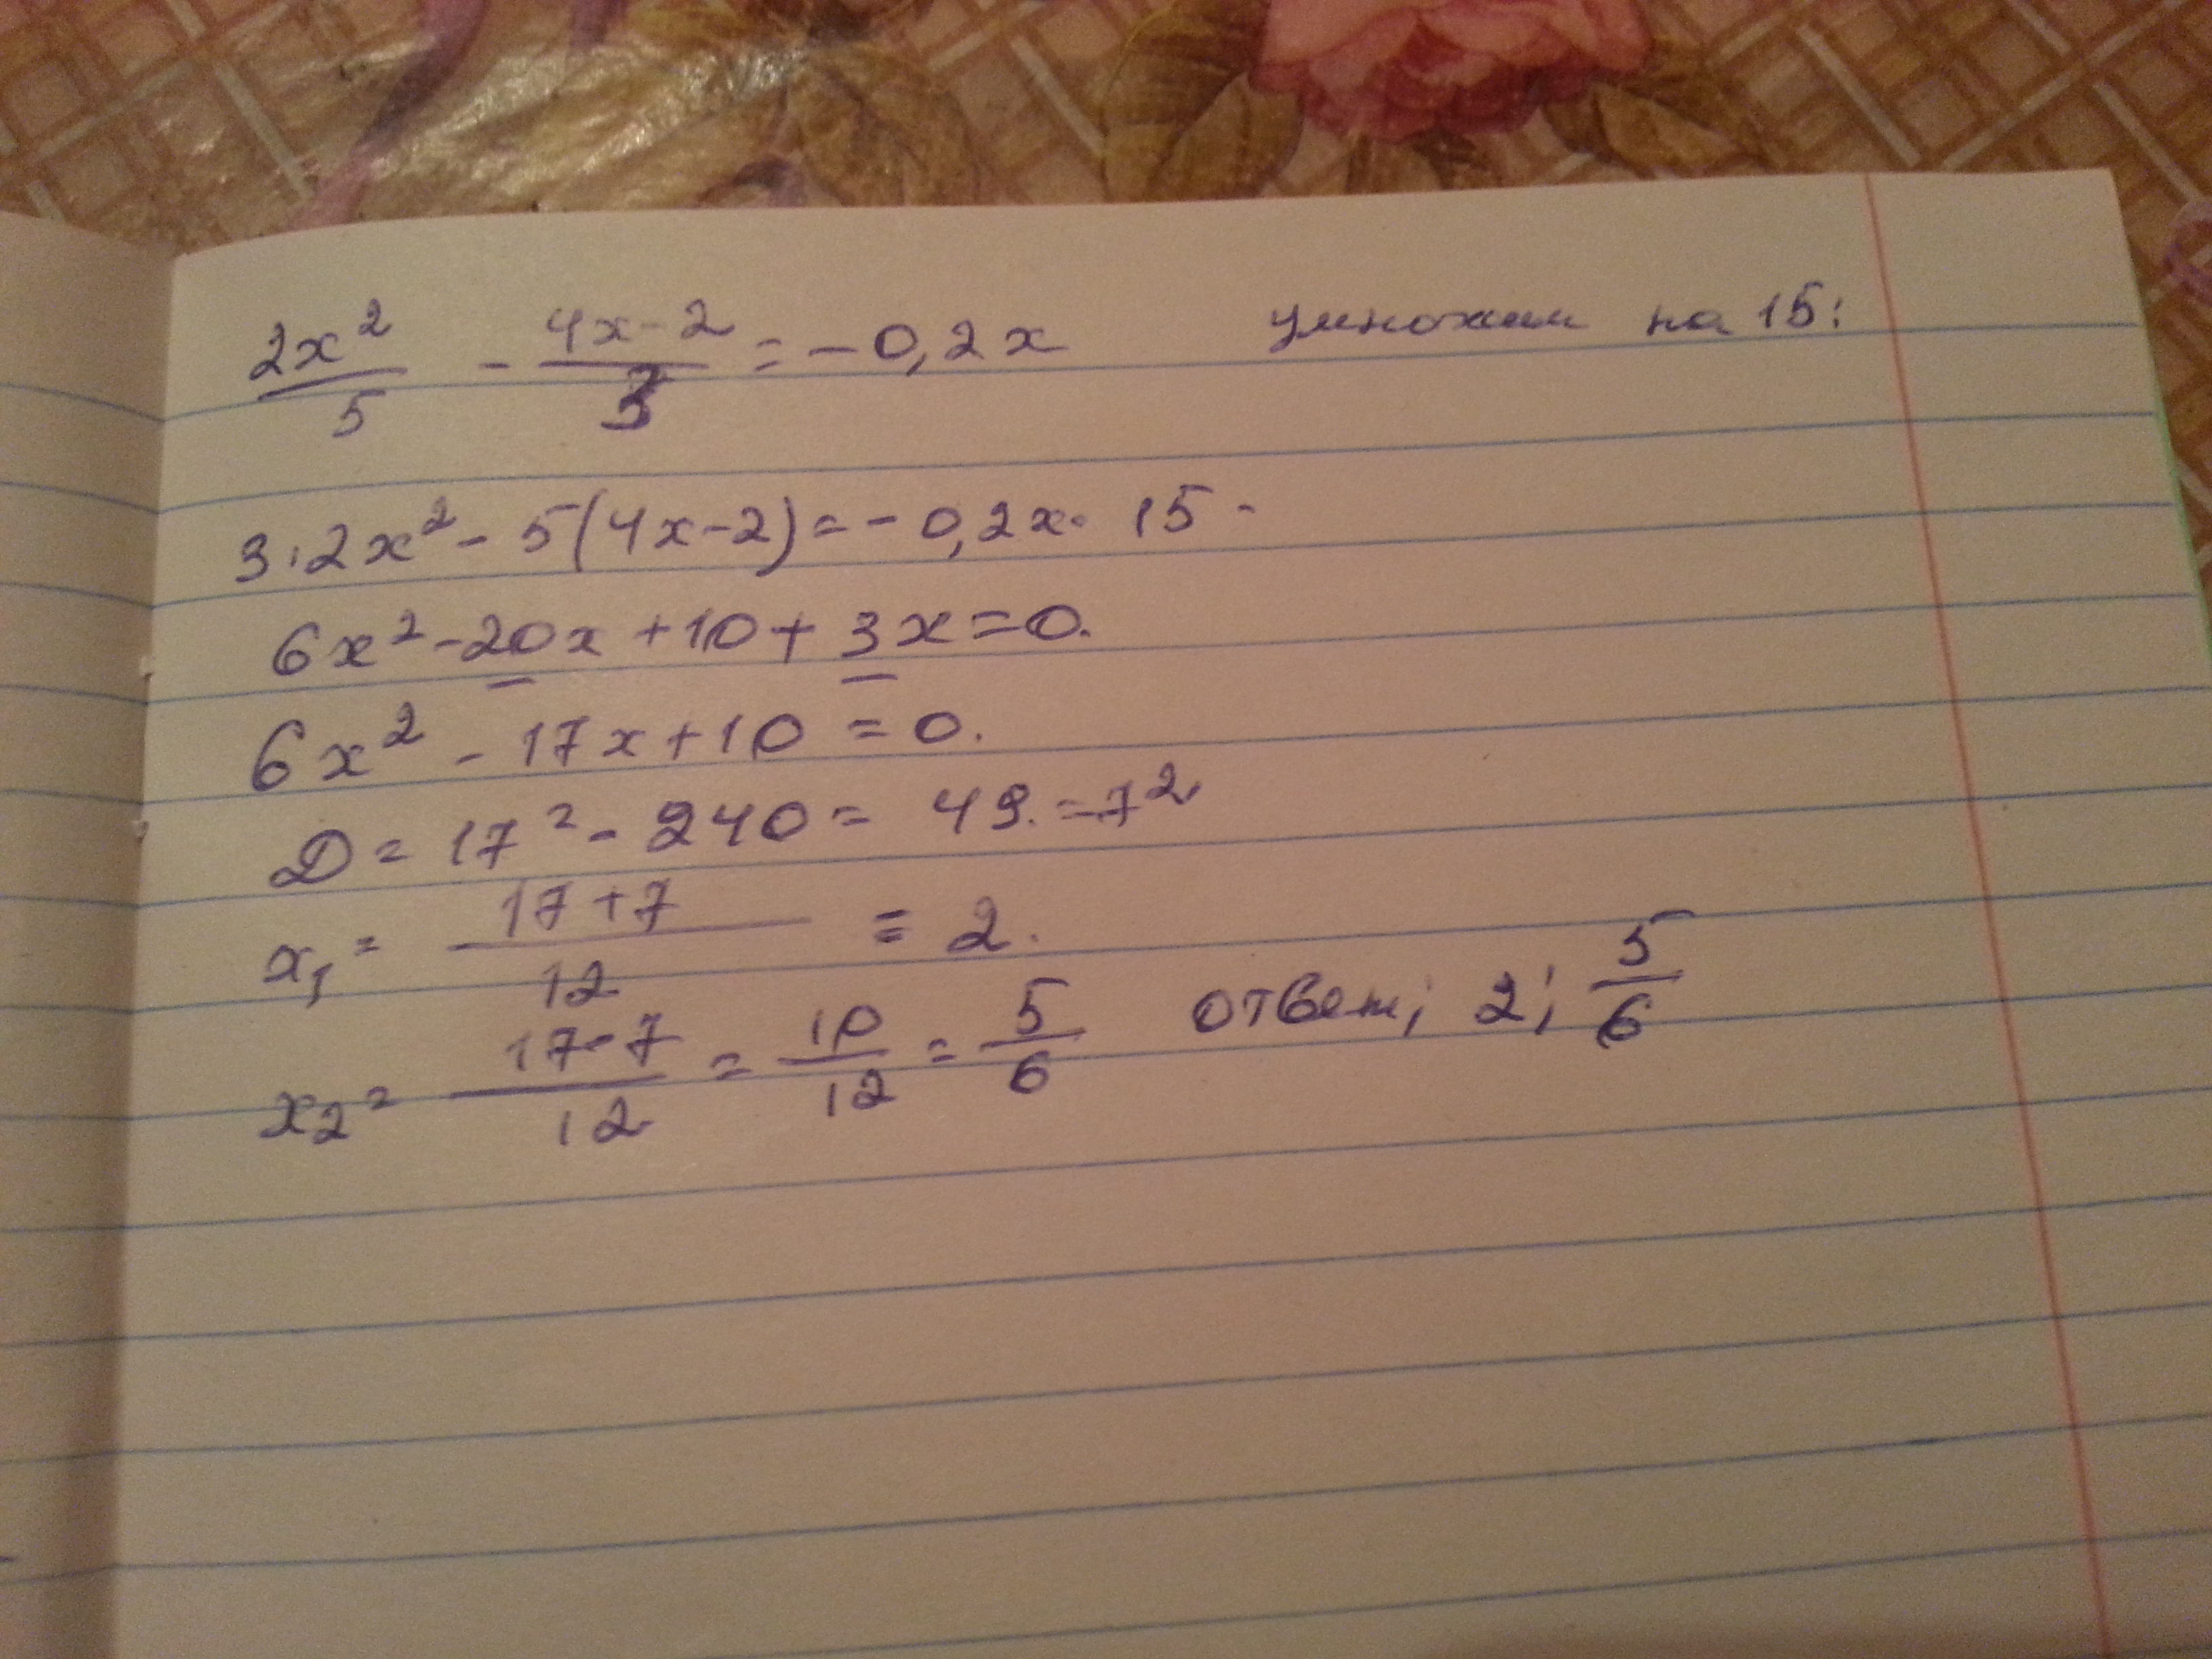 2x²/5 - (4x-2)/3 = -0,2x умножим на 15:
3·2x² - 5(4x-2) = -0,2x· 15 -
6x² - 20x + 10 + 3x = 0.
6x² - 17x + 10 = 0.
D = 17² - 240 = 49. = 7².
x₁ = (17+7)/12 = 2.
x₂ = (17-7)/12 = 10/12 = 5/6 ответ; 2; 5/6